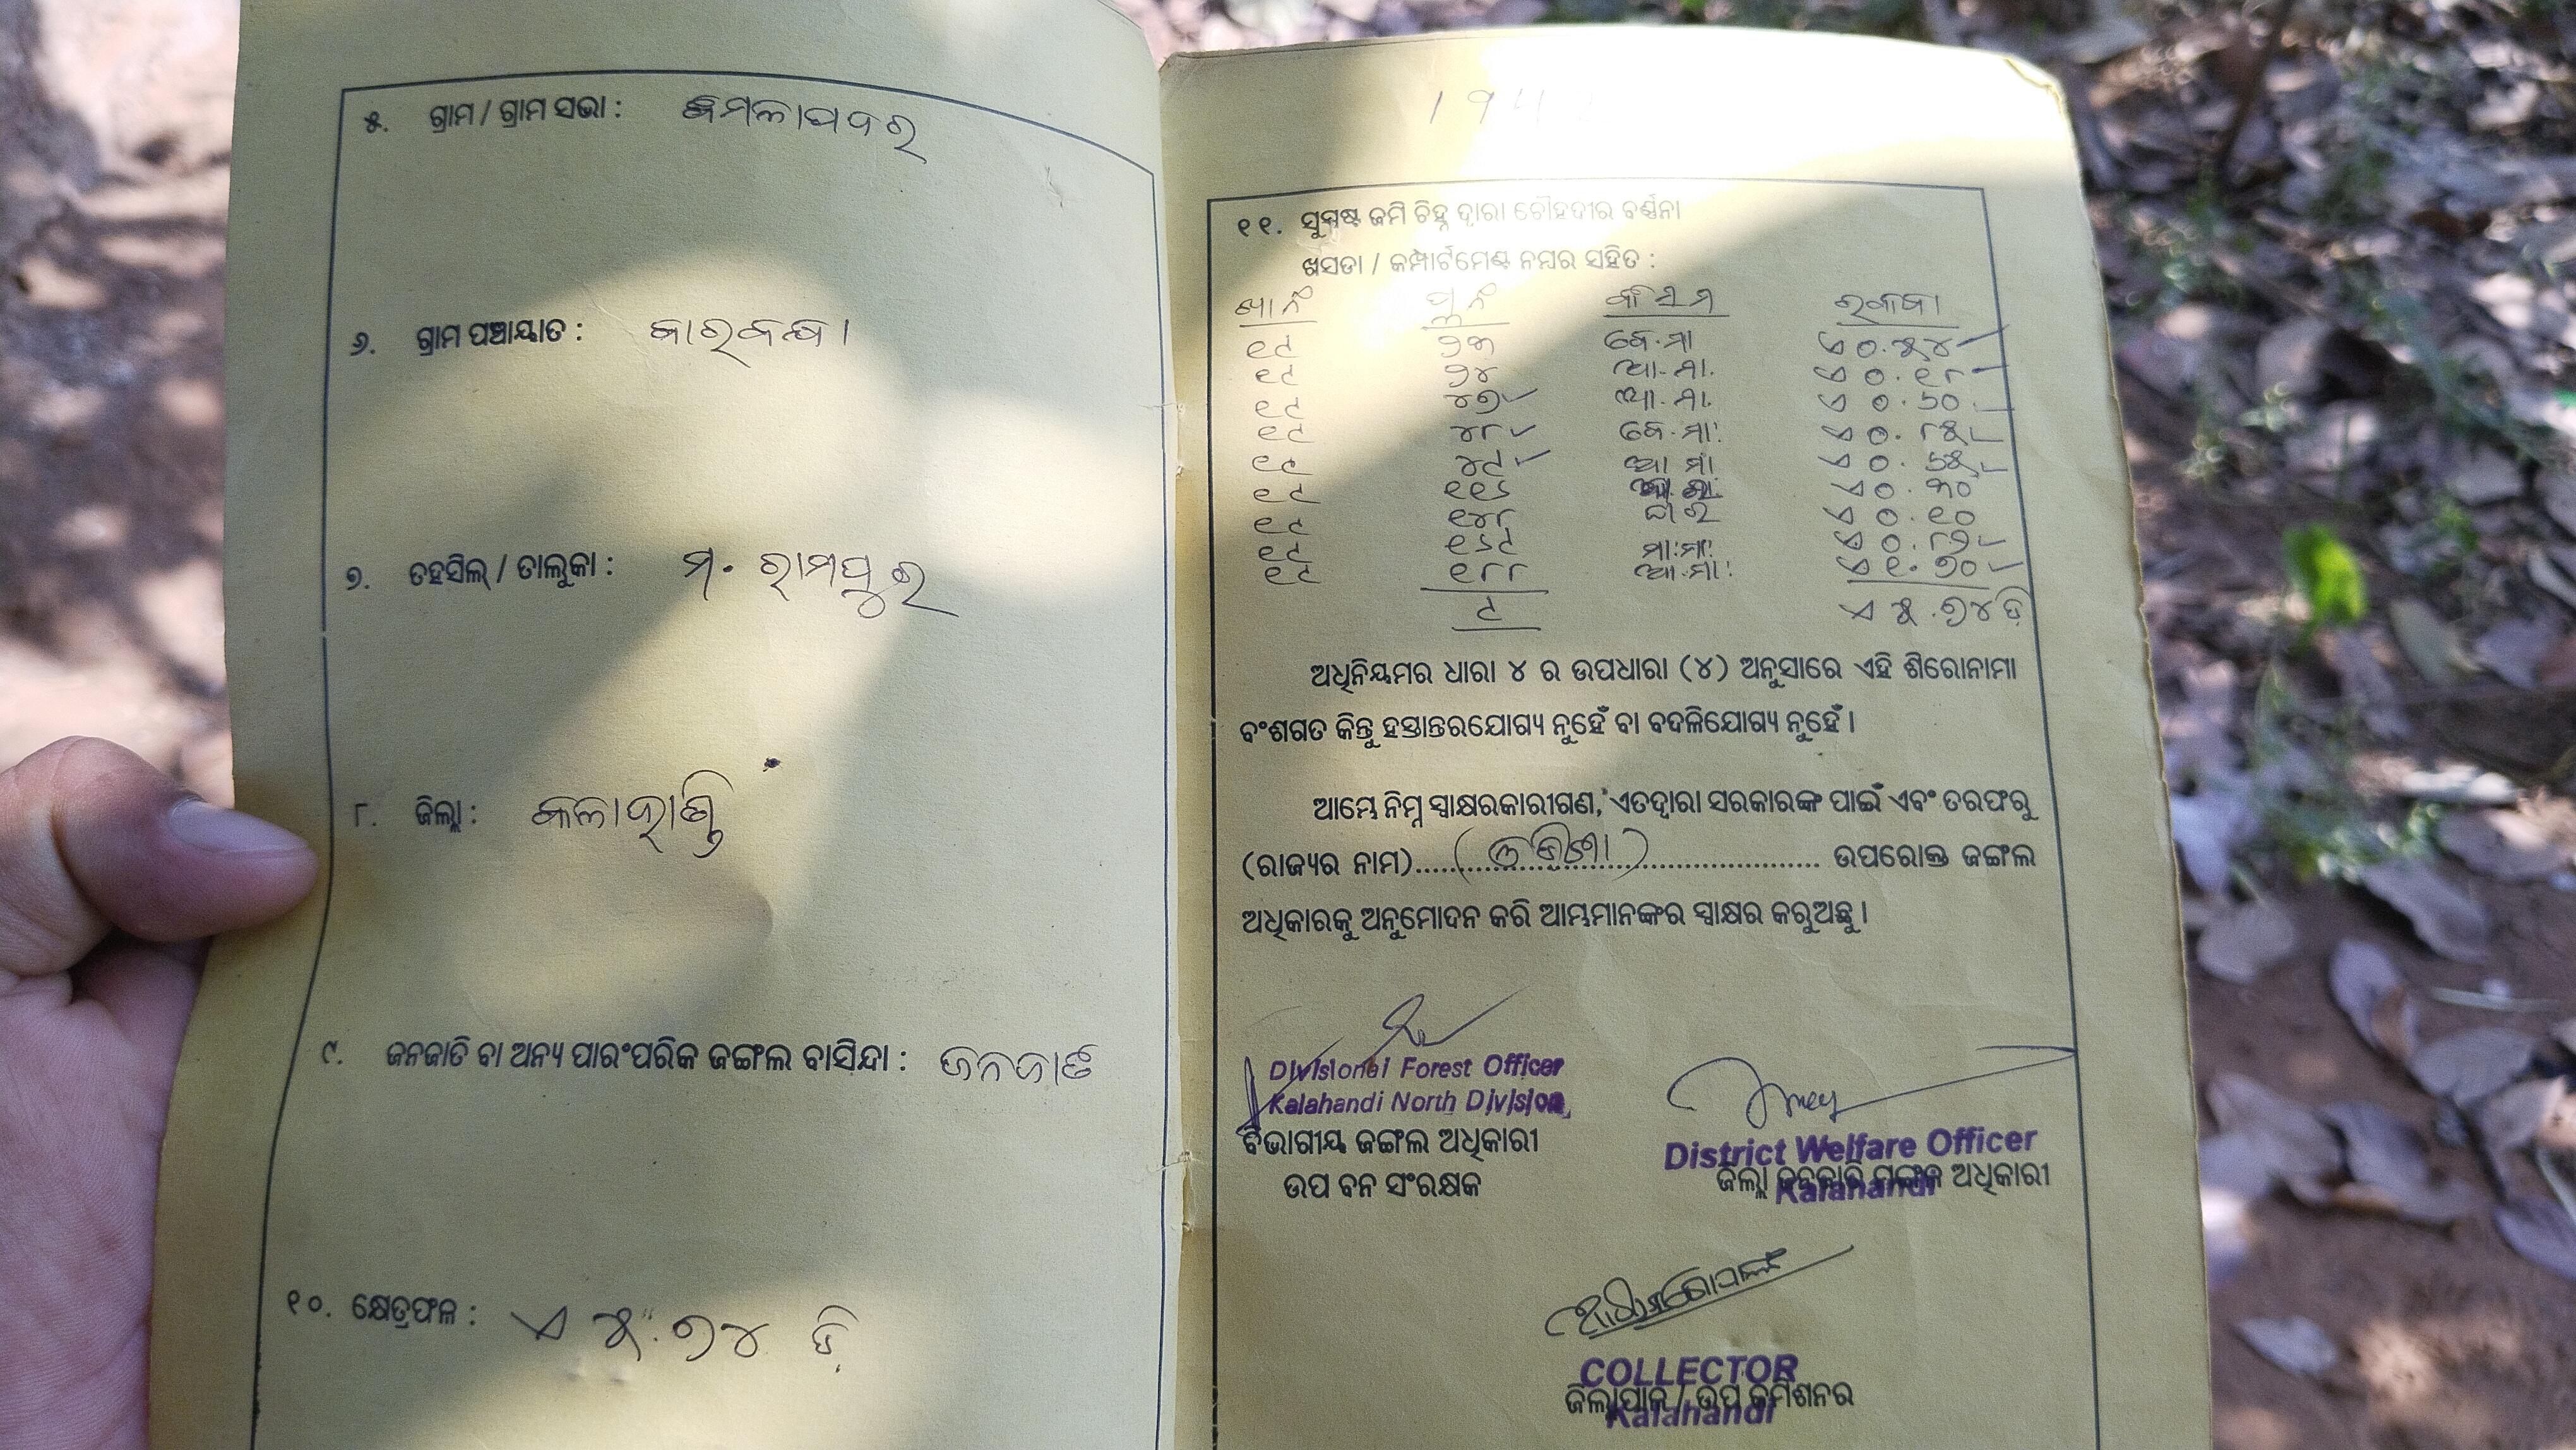 ୫. ଗ୍ରାମ / ଗ୍ରାମ ସଭା : କମଳାପଦର
୬. ଗ୍ରାମ ପଞ୍ଚାୟାତ :
୭. ତହସିଲ୍ / ତାଲୁକା : ମ. ରାମପୁର
୮. ଜିଲ୍ଲା : କଳାହାଣ୍ଡି
୯. ଜନଜାତି ବା ଅନ୍ୟ ପାରଂପରିକ ଜଙ୍ଗଲ ବାସିନ୍ଦା : ଜନଜାତି
୧୦. କ୍ଷେତ୍ରଫଳ : ଏ ୫.୭୪ ଡି
୧୧. ସୁସ୍ପଷ୍ଟ ଜମି ଚିହ୍ନ ଦ୍ୱାରା ଚୌହଦୀର ବର୍ଣ୍ଣନା
ଖସଡା / କମ୍ପାର୍ଟମେଣ୍ଟ ନମ୍ବର ସହିତ :
ଖା ନଂ ପ୍ଲ ନଂ କିସମ ରକବା
୧୯ ୨୩ ବେ.ମା ଏ ୦.୫୪
୧୯ ୨୪ ଆ.ମା. ଏ ୦.୧୮
୧୯ ୪୭ ଆ.ମା. ଏ ୦.୬୦
୧୯ ୪୮ ବେ.ମା. ଏ ୦.୮୫
୧୯ ୪୯ ଆ ମା ଏ ୦.୬୫
୧୯ ୧୧୬ ଏ ୦.୩୦
୧୯ ୧୪୮ ଏ ୦.୧୦
୧୯ ୧୬୯ ମା.ମା. ଏ ୦.୮୨
୧୯ ୧୮୮ ଆ.ମା. ଏ ୧.୭୦
୯ ଏ ୫.୭୪ ଡି
ଅଧିନିୟମର ଧାରା ୪ ର ଉପଧାରା (୪) ଅନୁସାରେ ଏହି ଶିରୋନାମା
ବଂଶଗତ କିନ୍ତୁ ହସ୍ତାନ୍ତରଯୋଗ୍ୟ ନୁହେଁ ବା ବଦଳିଯୋଗ୍ୟ ନୁହେଁ ।
ଆମ୍ଭେ ନିମ୍ନ ସ୍ୱାକ୍ଷରକାରୀଗଣ, ଏତଦ୍ୱାରା ସରକାରଙ୍କ ପାଇଁ ଏବଂ ତରଫରୁ
(ରାଜ୍ୟର ନାମ)....(ଓଡିଶା).... ଉପରୋକ୍ତ ଜଙ୍ଗଲ
ଅଧିକାରକୁ ଅନୁମୋଦନ କରି ଆମ୍ଭମାନଙ୍କର ସ୍ୱାକ୍ଷର କରୁଅଛୁ ।
Divisional Forest Officer
Kalahandi North Division
ବିଭାଗୀୟ ଜଙ୍ଗଲ ଅଧିକାରୀ
ଉପ ବନ ସଂରକ୍ଷକ
District Welfare Officer
ଜିଲ୍ଲା ଜନଜାତି ମଙ୍ଗଳ ଅଧିକାରୀ
Kalahandi
COLLECTOR
ଜିଲ୍ଲାପାଳ / ଉପ କମିଶନର
Kalahandi